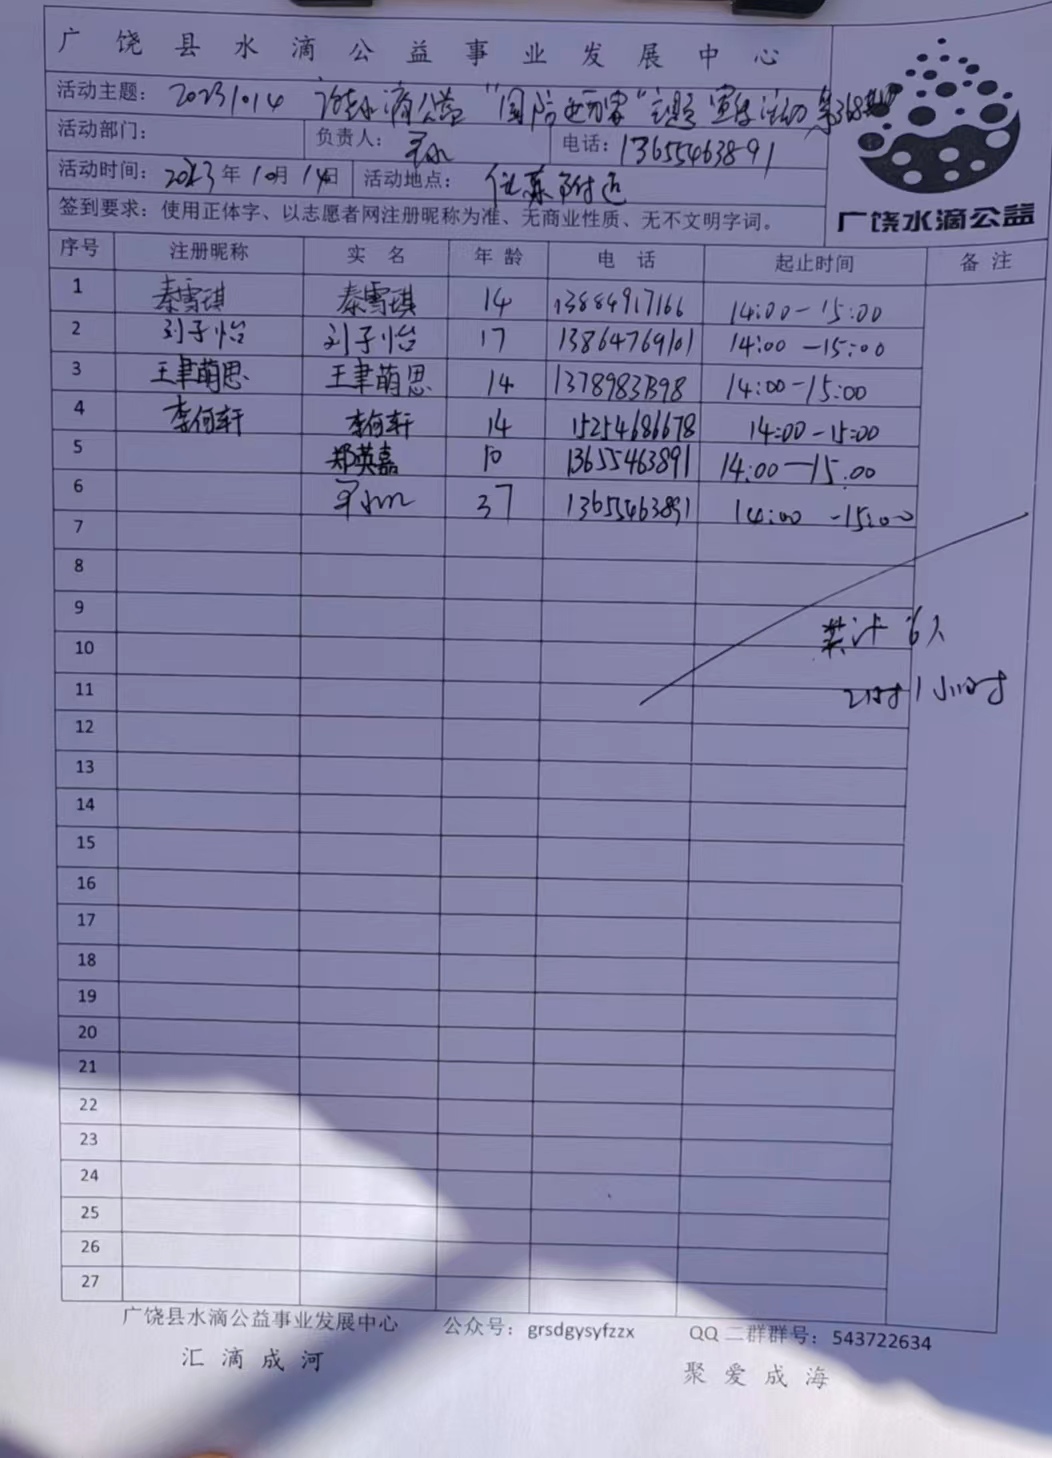 广饶县水滴公益事业发展中心
活动主题： 20231014 水滴公益 "国防 " 主题宣传活动 第368期
活动部门： 负责人： 电话： 13655463891
活动时间： 2023年10月14日 活动地点： 附近
签到要求：使用正体字、以志愿者网注册昵称为准、无商业性质、无不文明字词。
广饶水滴公益
序号 注册昵称 实名 年龄 电话 起止时间 备注
1 秦雪琪 秦雪琪 14 13884917166 14:00-15:00
2 刘子怡 刘子怡 17 13864769101 14:00-15:00
3 王聿萌思 王聿萌思 14 14:00-15:00
4 李何轩 李何轩 14 15254686678 14:00-15:00
5 郑英嘉 10 13655463891 14:00-15:00
6 37 13655463891 14:00-15:00
7
8
9
共计6人
10
11
用时1小时
12
13
14
15
16
17
18
19
20
21
22
23
24
25
26
27
广饶县水滴公益事业发展中心 公众号：grsdgysyfzzx QQ二群群号：543722634
汇滴成河 聚爱成海